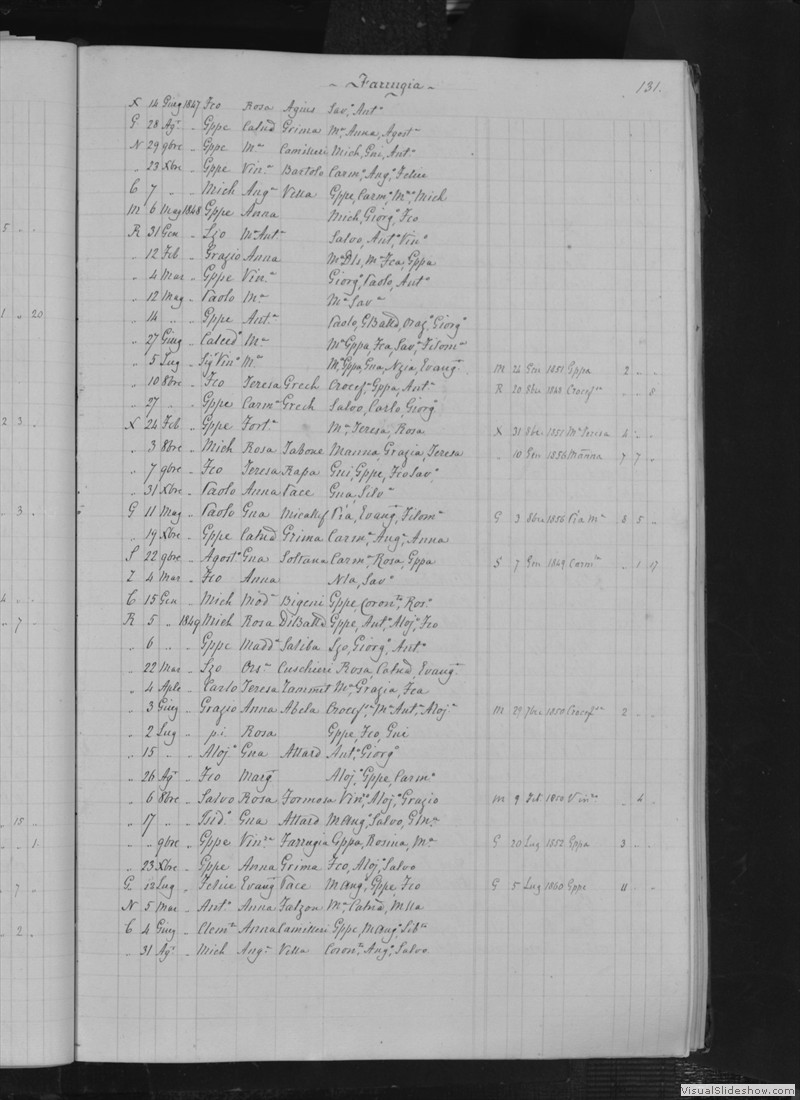 Farrugia
131.
X 14 Giug 1847 Fco Rosa Agius Sav.ª Ant.ª
G 28 Ag.º " Gppe Catñd Grima M.ª Anna, Agost.ª
N 29 9bre " Gppe M.ª Camilleri Mich, Gni, Ant.ª
" 23 Xbre " Gppe Vin.ª Bartolo Carm.ª Ang.ª Felice
C 7 " " Mich Ang.ª Vella Gppe, Carm.ª M.ª Mich
M 6 Mag 1848 Gppe Anna Mich, Giorg.º Fco
R 31 Gen " Lzo M.ª Ant.ª Salvo, Ant.º Vin.º
" 12 Feb " Grazio Anna M.ª Dls, M.ª Fca, Gppa
" 4 Mar " Gppe Vin.ª Giorg.º Paolo, Ant.ª
" 12 Mag " Paolo M.ª M.ª Sav.ª
" 14 " " Gppe Ant.ª Paolo, GBattã, Oraz.º Giorg.º
" 27 Giug " Calced.º M.ª M.ª Gppa, Fca, Sav.ª Filom.ª
" 5 Lug " Sig Vin.º M.ª M.ª Gppa, Gna, Nzia, Evang.ª M 24 Gen 1851 Gppa 2 " "
" 10 8bre " Fco Teresa Grech Crocef.ª Gppa, Ant.ª R 20 8bre 1848 Crocef.ª " " 8
" 27 " " Gppe Carm.ª Grech Salvo, Carlo, Giorg.º
X 24 Feb " Gppe Fort.ª M.ª Teresa, Rosa X 31 8bre 1852 M.ª Teresa 4 " "
" 3 8bre " Mich Rosa Tabone Marina, Grazia, Teresa " 10 Gen 1856 Marina 7 7 "
" 7 9bre " Fco Teresa Rapa Gni, Gppe, Fco Sav.º
" 31 Xbre " Paolo Anna Pace Gna, Silv.ª
G 11 Mag " Paolo Gna Micallef Pia, Evang.ª Filom.ª G 3 8bre 1856 Pia M.ª 8 5 "
" 19 Xbre " Gppe Catñd Grima Carm.ª Ang.ª Anna
S 22 9bre " Agost.º Gna Soltana Carm.ª Rosa, Gppa S 7 Gen 1849 Carm.ª " 1 17
Z 4 Mar " Fco Anna Nla, Sav.ª
C 15 Gen " Mich Mod.ª Bigeni Gppe, Coron.ta, Ros.ª
R 5 " 1849 Mich Rosa DiBattã Gppe, Ant.º Aloj.º Fco
" 6 " " Gppe Madd.ª Saliba Lzo, Giorg.º Ant.ª
" 22 Mar " Lzo Ors.ª Cuschieri Rosa, Catñd, Evang.ª
" 4 Aple " Carlo Teresa Zammit M.ª Grazia, Fca
" 3 Giug " Grazio Anna Abela Crocef.ª M.ª Ant.ª Aloj.ª M 29 7bre 1850 Crocef.ª 2 " "
" 2 Lug " p.i. Rosa Gppe, Fco, Gni
" 15 " " Aloj.º Gna Attard Ant.º Giorg.º
" 26 Ag.º " Fco Marg.ª Aloj.º Gppe, Carm.º
" 6 8bre " Salvo Rosa Formosa Vin.ª Aloj.º Grazio M 9 Feb 1850 Vin.ª " 4 "
" 17 " " Isid.º Gna Attard MAng.ª Salvo, Glm.ª
" " 9bre " Gppe Vin.ª Farrugia Gppa, Rosina, M.ª G 20 Lug 1852 Gppa 3 " "
" 23 Xbre " Gppe Anna Grima Fco, Aloj.º Salvo
G 13 Lug " Felice Evang.ª Pace MAng.º Gppe, Fco G 5 Lug 1860 Gppe 11 " "
N 5 Mar " Ant.º Anna Falzon M.ª Catñd, Mlla
C 4 Giug " Clem.te Anna Camilleri Gppe, MAng.º Sib.ª
" 31 Ag.º " Mich Ang.ª Vella Coron.ta Ang.º Salvo
VisualSlideshow.com